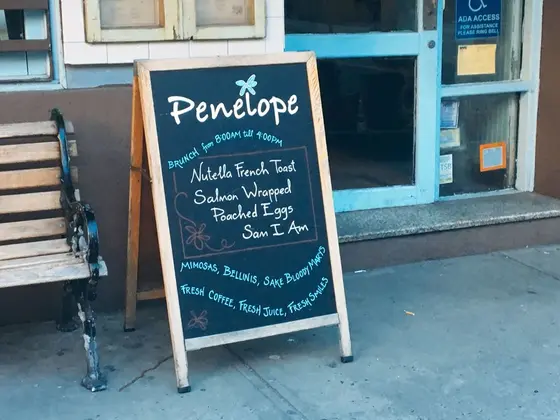 Penelope
BRUNCH from 8:00AM till 4:00PM
Nutella French Toast
Salmon Wrapped
Poached Eggs
Sam I Am
MIMOSAS, BELLINIS, SAKE BLOODY MARYS
FRESH COFFEE, FRESH JUICE, FRESH SMILES
ADA ACCESS
FOR ASSISTANCE
PLEASE RING BELL